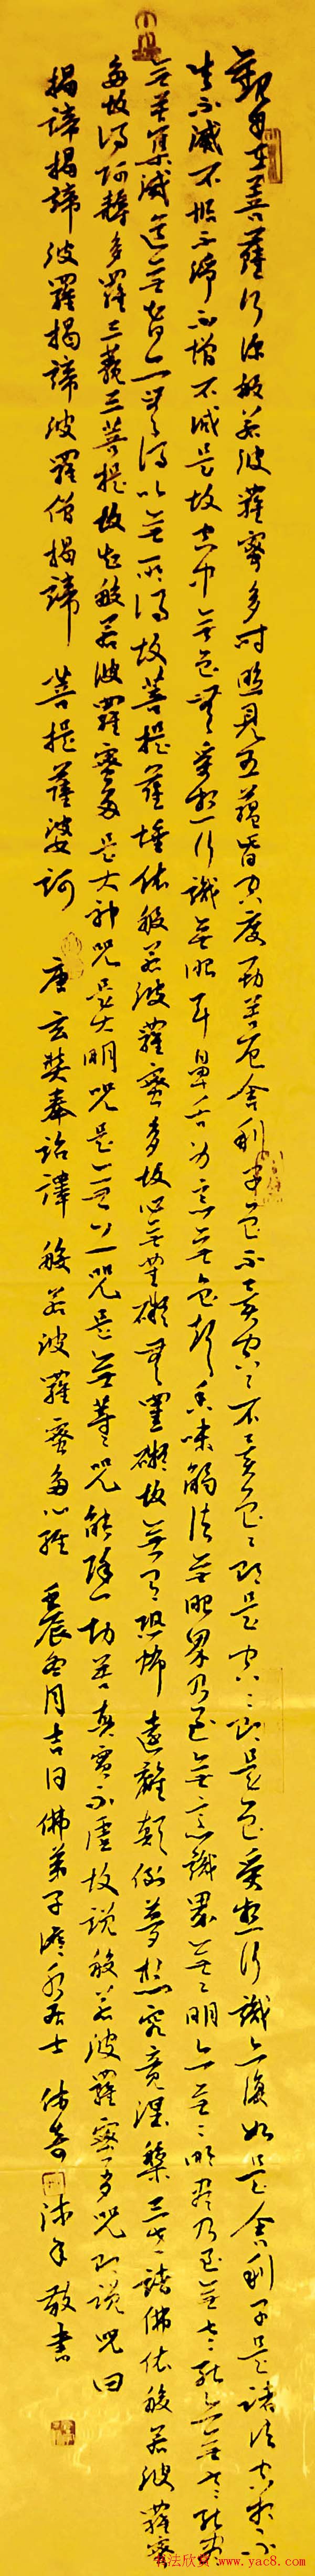 觀自在菩薩行深般若波羅蜜多時照見五蘊皆空度一切苦厄舍利子色不異空空不異色色即是空空即是色受想行識亦復如是舍利子是諸法空相不
生不滅不垢不淨不增不減是故空中無色無受想行識無眼耳鼻舌身意無色聲香味觸法無眼界乃至無意識界無無明亦無無明盡乃至無老死亦無老死盡
無苦集滅道無智亦無得以無所得故菩提薩埵依般若波羅蜜多故心無罣礙無罣礙故無有恐怖遠離顛倒夢想究竟涅槃三世諸佛依般若波羅蜜
多故得阿耨多羅三藐三菩提故知般若波羅蜜多是大神咒是大明咒是無上咒是無等等咒能除一切苦真實不虛故說般若波羅蜜多咒即說咒曰
揭諦揭諦波羅揭諦波羅僧揭諦 菩提薩婆訶 唐玄奘奉詔譯 般若波羅蜜多心經 壬辰冬月吉日佛弟子居士 沐手敬書
书法欣赏 www.yac8.com